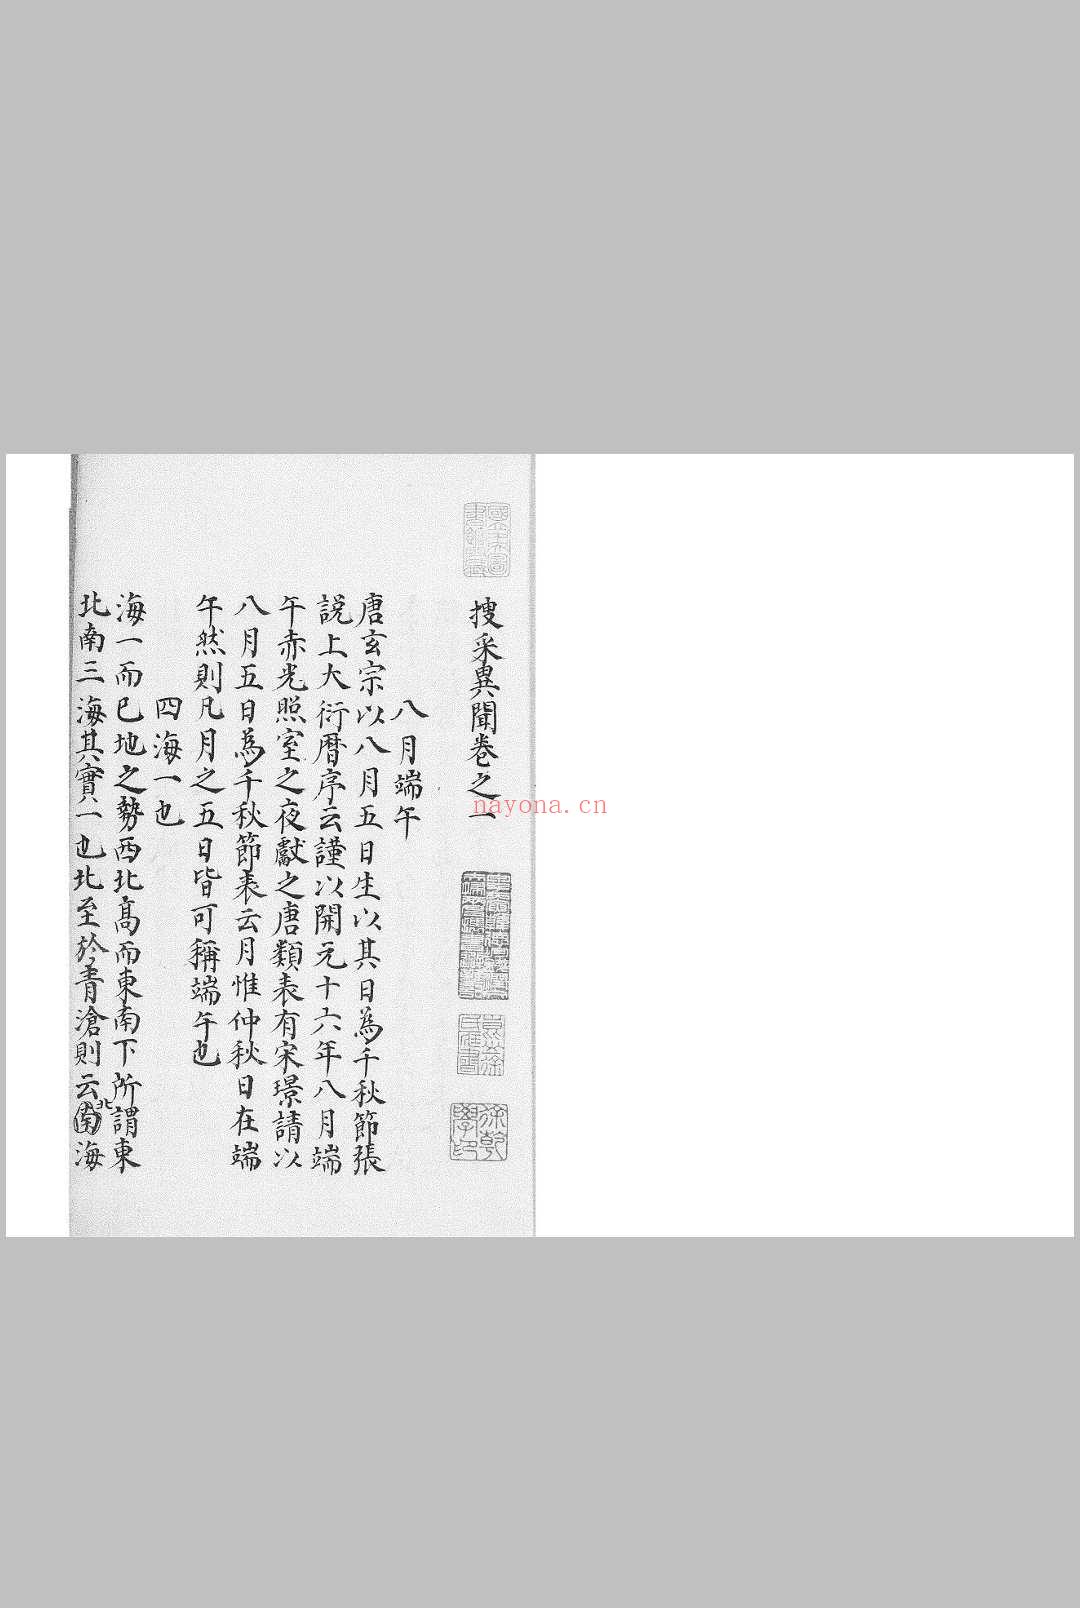 搜采異聞卷之一
八月端午
唐玄宗以八月五日生以其日為千秋節張
說上大衍曆序云謹以開元十六年八月端
午赤光照室之夜獻之唐類表有宋璟請以
八月五日為千秋節表云月惟仲秋日在端
午然則凡月之五日皆可稱端午也
四海一也
海一而已地之勢西北高而東南下所謂東
北南三海其實一也北至於青滄則云南北海
徐乾學印
nayona.cn